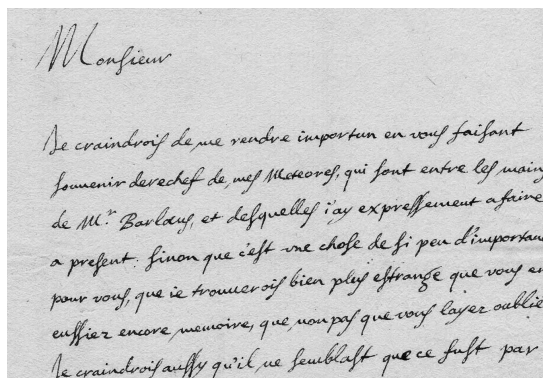 Monsieur
Je craindrois de me rendre importun en vous faisant
souvenir derechef de mes Meteores, qui sont entre les main
de Mr Barlæus, et desquelles i'ay expressement a faire
a present: sinon que c'est vne chose de si peu d'importan
pour vous, que ie trouuerois bien plus estrange que vous en
eussiez encore memoire, que, non pas que vous l'ayez oublie
Je craindrois aussy qu'il ne semblast que ce fust par